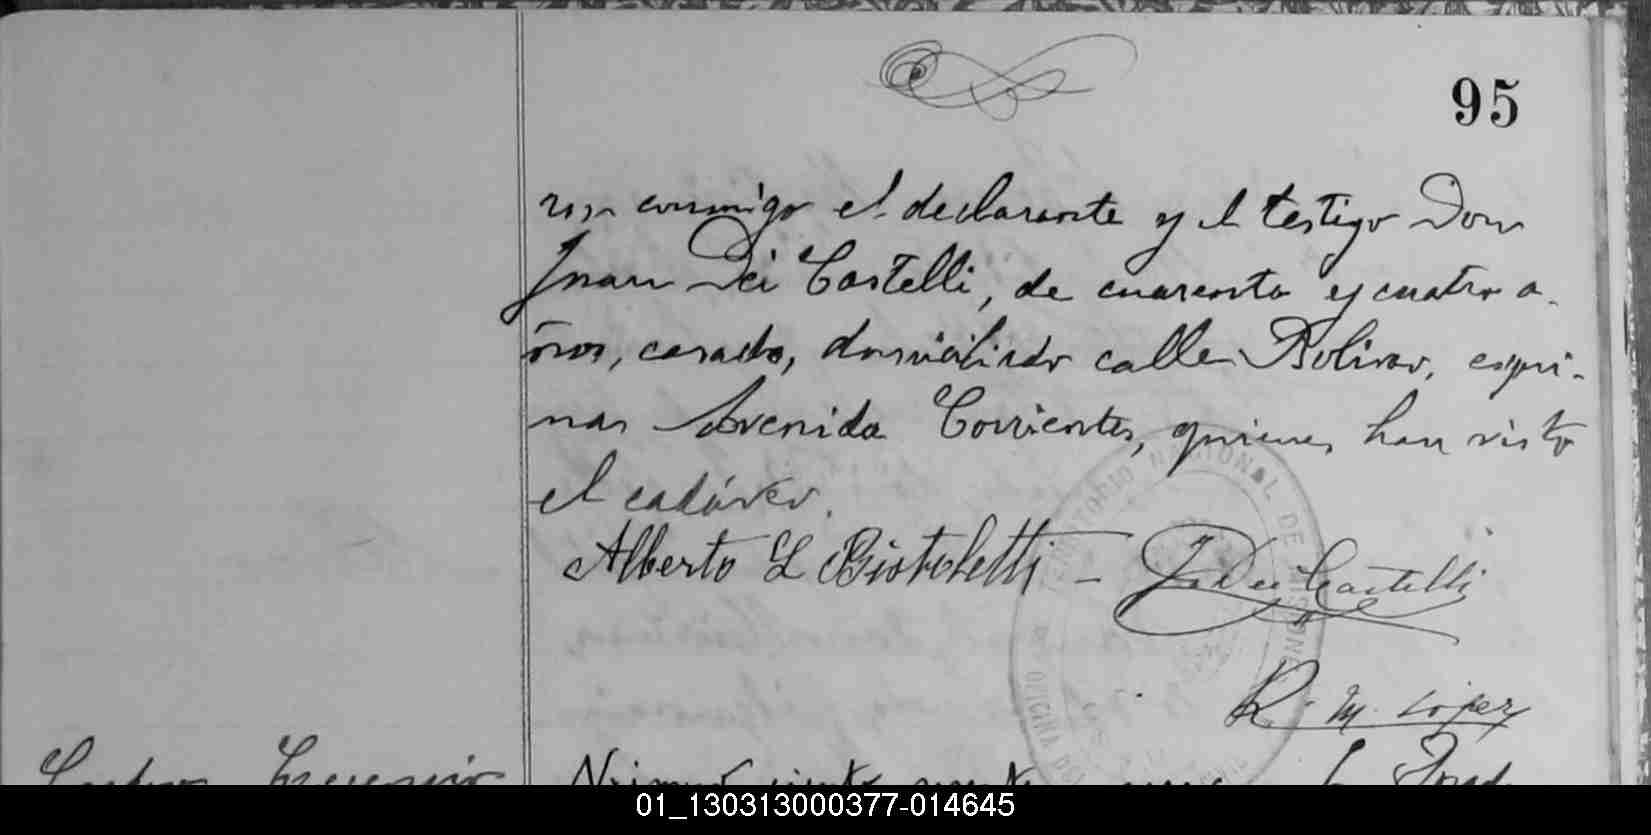 95
ron conmigo el declarante y el testigo Don
Juan Dei Castelli, de cuarenta y cuatro a-
ños, casado, domiciliado calle Bolivar, esqui-
nas Avenida Corrientes, quienes han visto
el cadáver.
Alberto L Bistoletti - J. Dei Castelli
TERRITORIO NACIONAL DE MISIONES
OFICINA DEL
R. M. López
01_130313000377-014645